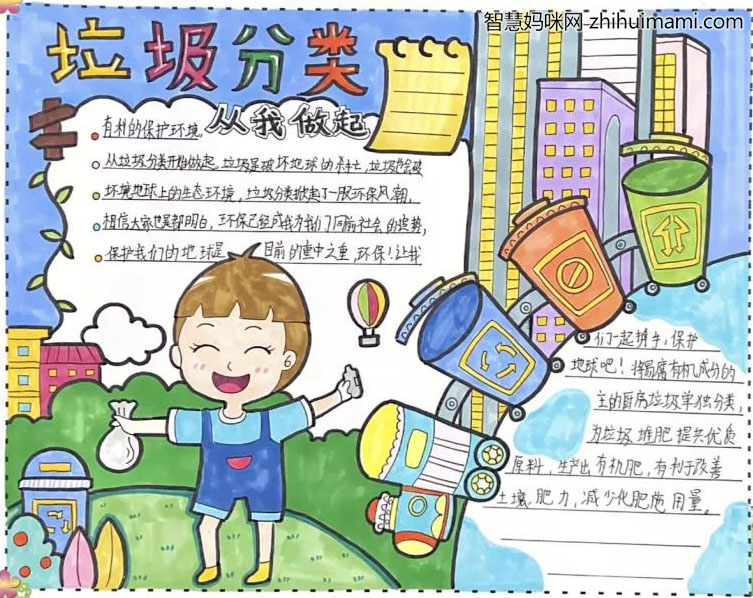 智慧妈咪网 zhihuimami.com
垃圾分类
从我做起
有利的保护环境,
从垃圾分类开始做起,垃圾是破坏地球的杀手,垃圾会破
坏境地球上的生态环境,垃圾分类掀起了一股环保风潮,
相信大家也是都明白,环保已经成为我们问前社会的趋势,
保护我们的地球是 目前的重中之重 环保!让我
们一起携手,保护
地球吧!将易腐有机成分的
主的厨房垃圾单独分类,
为垃圾堆肥提共优质
原料,生产出有机肥,有利于改善
土壤肥力,减少化肥施用量。